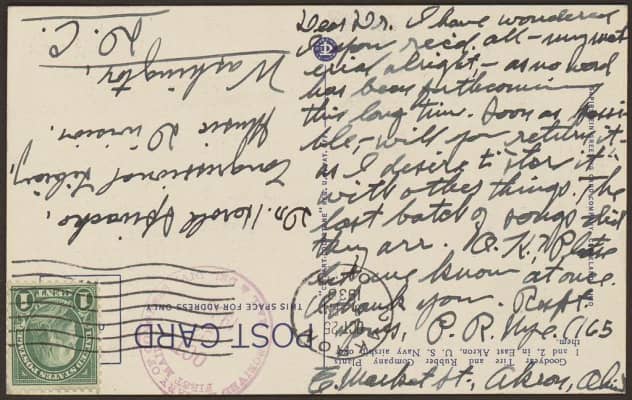 Dear Dr. I have wondered
if you rec'd. all - my mat
erial alright - as no word
has been forthcoming
this long time. Soon as possi
ble, - will you return it -
as I desire to stor it
with other things. The
last batch of songs - did
they arr. O.K.? Please
let me know at once.
Thank you. Respt.
yours, P. R. Nye. 1165
E. Market St., Akron, Ohio
Dr. Harold Spivacke,
Congressional Library,
Music Division.
Washington,
D. C.
POST CARD
THIS SPACE FOR ADDRESS ONLY
Goodyear Tire and Rubber Company Plants
1 and 2, in East Akron. U. S. Navy airship over
them
UNITED STATES POSTAGE
1